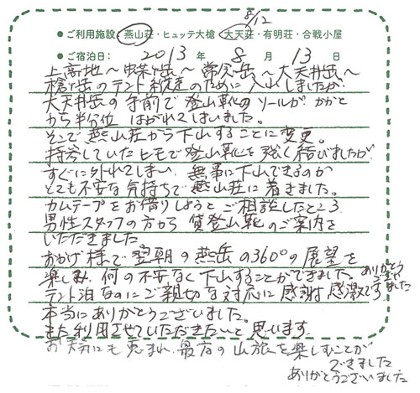 8/12
●ご利用施設:燕山荘・ヒュッテ大槍・大天荘・有明荘・合戦小屋
●ご宿泊日: 2013年 8月 13日
上高地〜蝶ヶ岳〜常念岳〜大天井岳〜
槍ヶ岳のテント縦走のために入山しましたが
大天井岳の手前で登山靴のソールがかかと
から半分位はがれてしまいました。
そこで燕山荘から下山することに変更。
持参していたヒモで登山靴を強く結いましたが
すぐに外れてしまい無事に下山できるのか
とても不安な気持ちで燕山荘に着きました。
ガムテープをお借りしようとご相談したところ
男性スタッフの方から貸登山靴のご案内を
いただきました
おかげ様で翌朝の燕岳の360°の展望を
楽しみ、何の不安なく下山することができました。ありがとうございました
テント泊なのにご親切な対応に感謝感激です
本当にありがとうございました。
また利用させていただきたいと思います
お天気にも恵まれ、最高の山旅を楽しむことが
できました
ありがとうございました